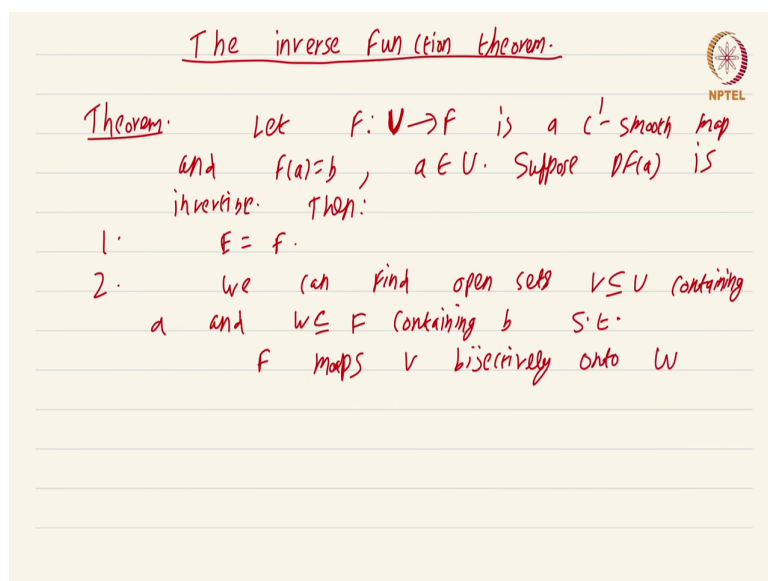 The inverse function theorem.
NPTEL
Theorem. Let F: U→F is a C¹-smooth map
and F(a)=b, a ∈ U. Suppose DF(a) is
invertible. Then:
1. E = F.
2. We can find open sets V⊆U containing
a and W⊆F containing b s.t.
F maps V bijectively onto W